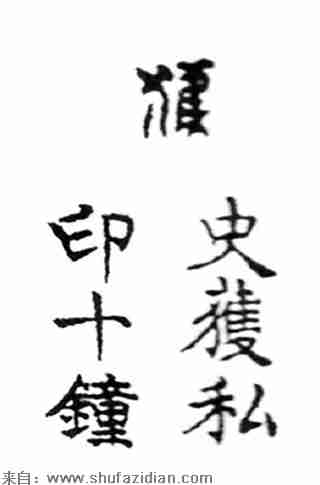 獲
史獲私
印十鐘
来自：www.shufazidian.com